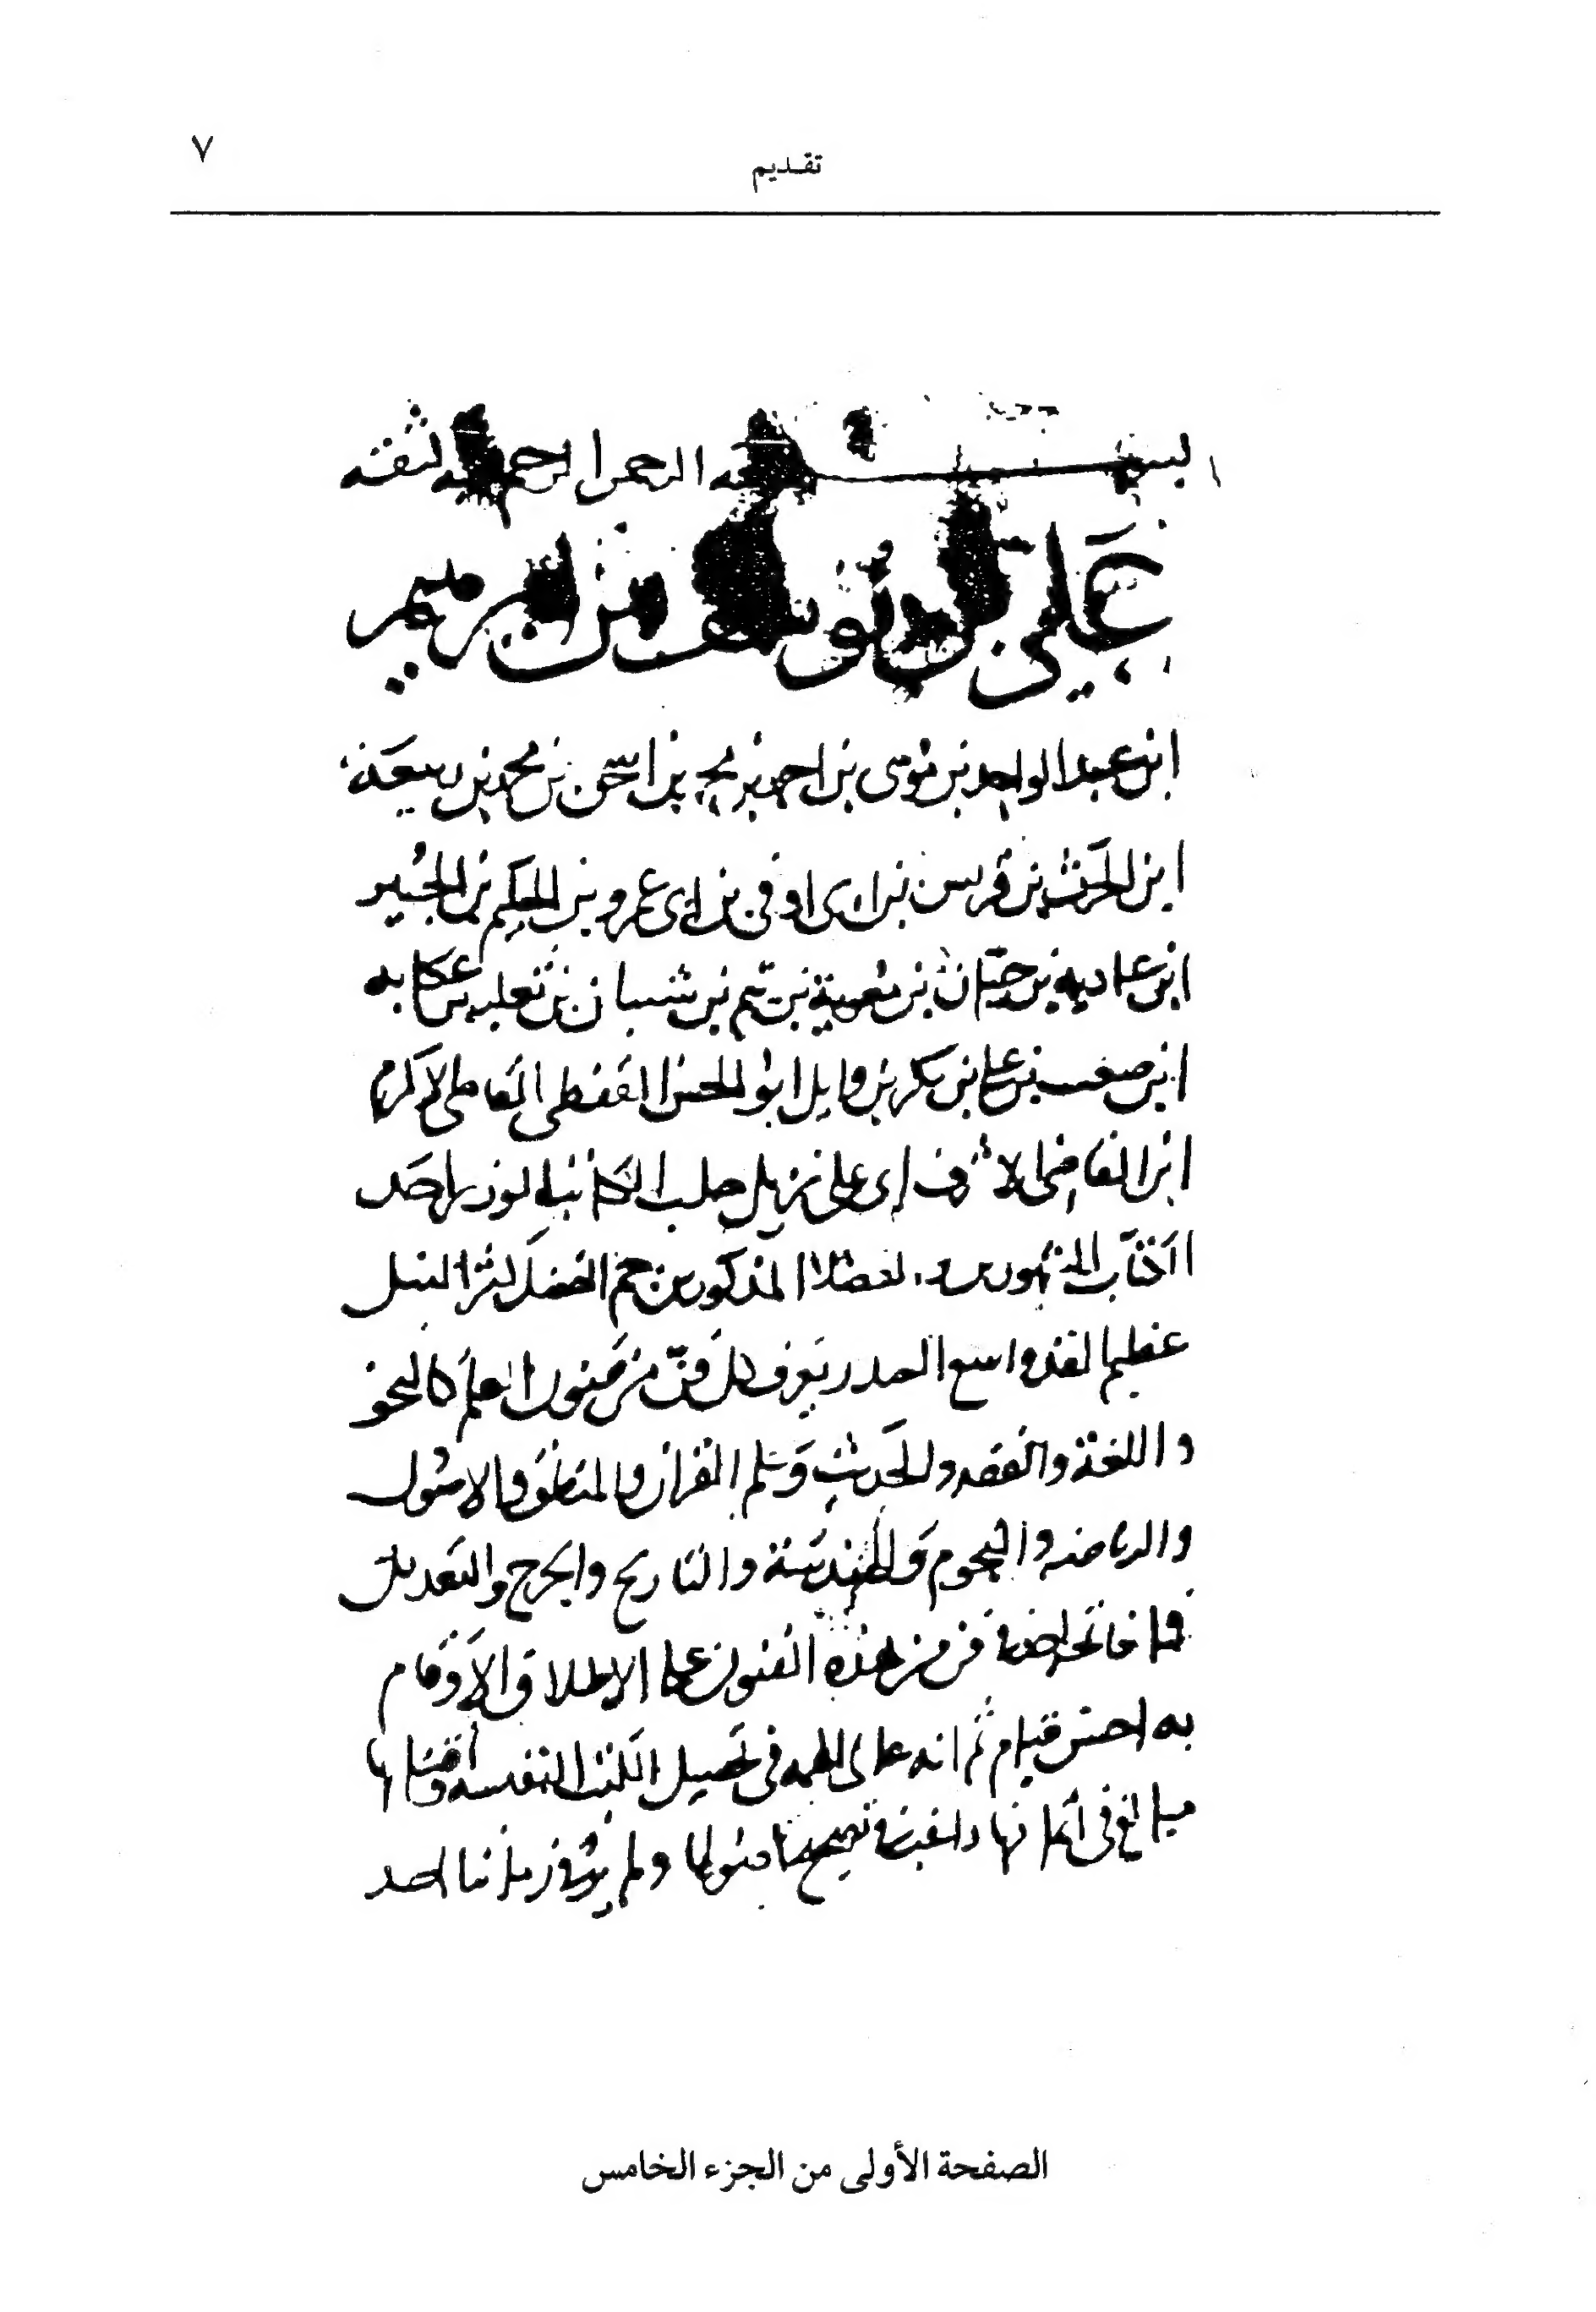 ٧
تقديم
بسم الله الرحمن الرحيم ثقته
علي بن يوسف بن إبرهيم
ابن عبد الواحد بن موسى بن احمد بن محمد بن اسحق بن محمد بن ربيعة
ابن الحرث بن قريس بن ابى اوفى بن ابى عمرو بن
ابن عاديه بن حيان بن معوية بن تيم بن شيبان بن ثعلبه بن عكابه
ابن صعب بن على بن بكر بن وايل ابو الحسن القفطى القاضى الاكرم
ابن القاضى الاشرف ابى نزيل حلب الكاتب الوزير احد
الكتاب المشهورين المذكورين جم الفضل النبل
عظيم القدر واسع الصدر يعرف كل فن من فنون العلم كالنحو
واللغة والفقه والحديث وعلم القران والمنطق والاصول
والرياضه والنجوم والهندسة والتاريخ والجرح والتعديل
فن من هذه الفنون على الاطلاق الا وقام
به احسن قيام ثم انه عالى الهمه فى تحصيل الكتب النفيسه
مبالغ فى اثمانها راغب فى تصحيح ولم فى زماننا احد
الصفحة الأولى من الجزء الخامس